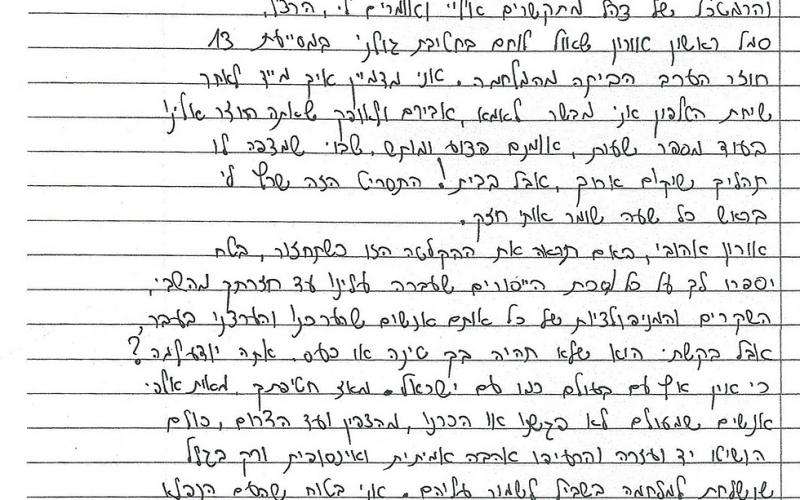 והרמטכ"ל של צה"ל מתקשרים אליי ואומרים לי, הרצל,
סמל ראשון אורון שאול לוחם בחטיבת גולני במסייעת 13
חוזר הערב הביתה מהמלחמה. אני מדמיין איך מייד לאחר
שיחת הטלפון אני מבשר לאמא, אבירם ולאופק שאתה חוזר אלינו
בעוד מספר שעות, אומנם פצוע ומותש, שבוי שמצפה לו
תהליך שיקום ארוך, אבל בבית! התסריט הזה שרץ לי
בראש כל שעה שומר אותי חזק.
אורון אהובי, באם תראה את ההקלטה הזו כשתחזור, בטח
יספרו לך על כל מסכת הייסורים שעברה עלינו עד חזרתך מהשבי,
השקרים והמניפולציות של כל אותם אנשים שהערכנו והערצנו בעבר,
אבל בקשתי הוא שלא תהיה בך טינה או כעס. אתה יודע למה?
כי אין אף עם בעולם כמו עם ישראל. מאז חטיפתך, מאות אלפי
אנשים שמעולם לא פגשנו או הכרנו, מהצפון ועד הדרום, כולם
הושיטו יד ועזרה והרעיפו אהבה אמיתית ואינסופית ורק בגלל
שנשלחת למלחמה בשביל לשמור עליהם. אני בטוח שהעם הנפלא